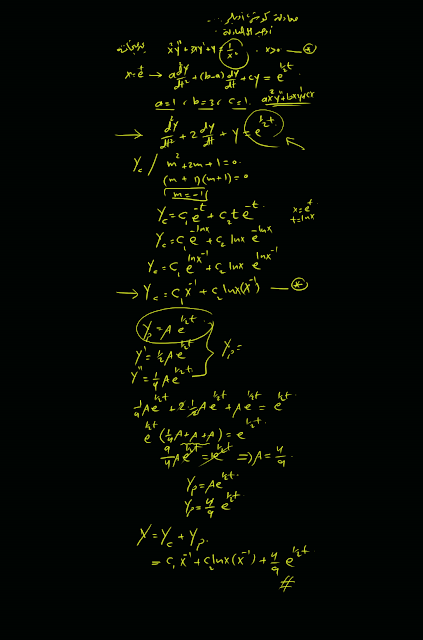 معادلة كوشي أويلر
x²y″ + 3xy′ + y = 1/x² x>0 — *
x = e^t → a d²y/dt² + (b-a) dy/dt + cy = e^{½t}
a=1 , b=3 , c=1. ax²y″+bxy′+cy
→ d²y/dt² + 2 dy/dt + y = e^{½t}
Yc / m² + 2m + 1 = 0
(m + 1)(m+1) = 0
m = -1
Yc = c₁e^{-t} + c₂ t e^{-t} x = e^t
t = lnx
Yc = c₁ e^{-lnx} + c₂ lnx e^{-lnx}
Yc = c₁ e^{lnx^{-1}} + c₂ lnx e^{lnx^{-1}}
→ Yc = c₁ x^{-1} + c₂ lnx(x^{-1}) — *
Yp = A e^{½t}
Y′ = ½ A e^{½t} } Yp =
Y″ = ¼ A e^{½t}
¼ A e^{½t} + 2·½ A e^{½t} + A e^{½t} = e^{½t}
e^{½t} (¼A + A + A) = e^{½t}
9/4 A e^{½t} = e^{½t} ⇒ A = 4/9
Yp = A e^{½t}
Yp = 4/9 e^{½t}
Y = Yc + Yp
= c₁ x^{-1} + c₂ lnx(x^{-1}) + 4/9 e^{½t}
#